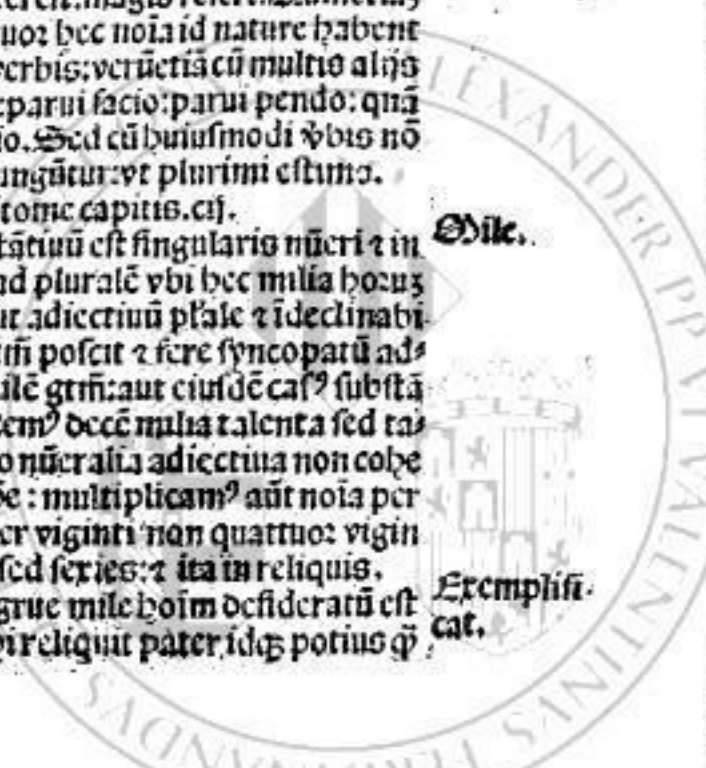 uoꝛ hec noı̄a id nature habent
verbis: verūetiā cū multis alijs
parui facio: parui pendo: quā
io. Sed cū huiusmodi v̄bis nō
ungūtur: vt plurimi estimo.
tome capitis. cij.
Mile.
tātiuū est singularis nūeri ⁊ in
ad pluralē vbi hec milia hoꝛuꝫ
ut adiectiuū pl̄ale ⁊ īdeclinabi-
tm̄ poscit ⁊ fere syncopatū ad⸗
ilē gtm̄: aut eiusdē casꝰ substā
temꝰ decē milia talenta sed ta⸗
o nūeralia adiectiua non cohe
be: multiplicamꝰ aūt noı̄a per
er viginti non quattuoꝛ vigin
sed sexies: ⁊ ita in reliquis.
grue mile hoīm desideratū est
Exemplifi-
cat.
bi reliquit pater idqꝫ potius q̄ꝫ
ALEXANDER PP VI VALENTINVS FERDINANDVS